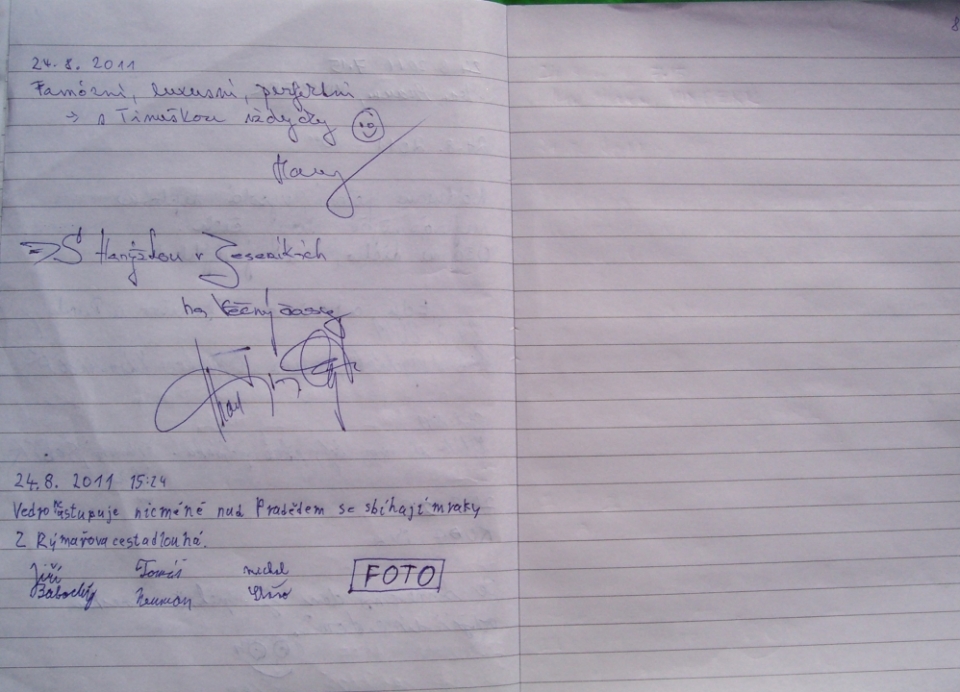 24. 8. 2011
Famózní, luxusní, perfektní
→ s Tinuškou vždycky
Hany
⇒ S Hanýžkou v Jeseníkách
na Věčný časy
24. 8. 2011 15:24
Vedro neustupuje nicméně nad Pradědem se sbíhají mraky
Z Rýmařova cesta dlouhá.
Jiří Tomáš
Neuman
FOTO
8